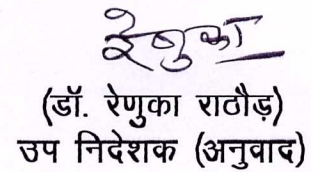 रेणुका
(डॉ. रेणुका राठौड़)
उप निदेशक (अनुवाद)